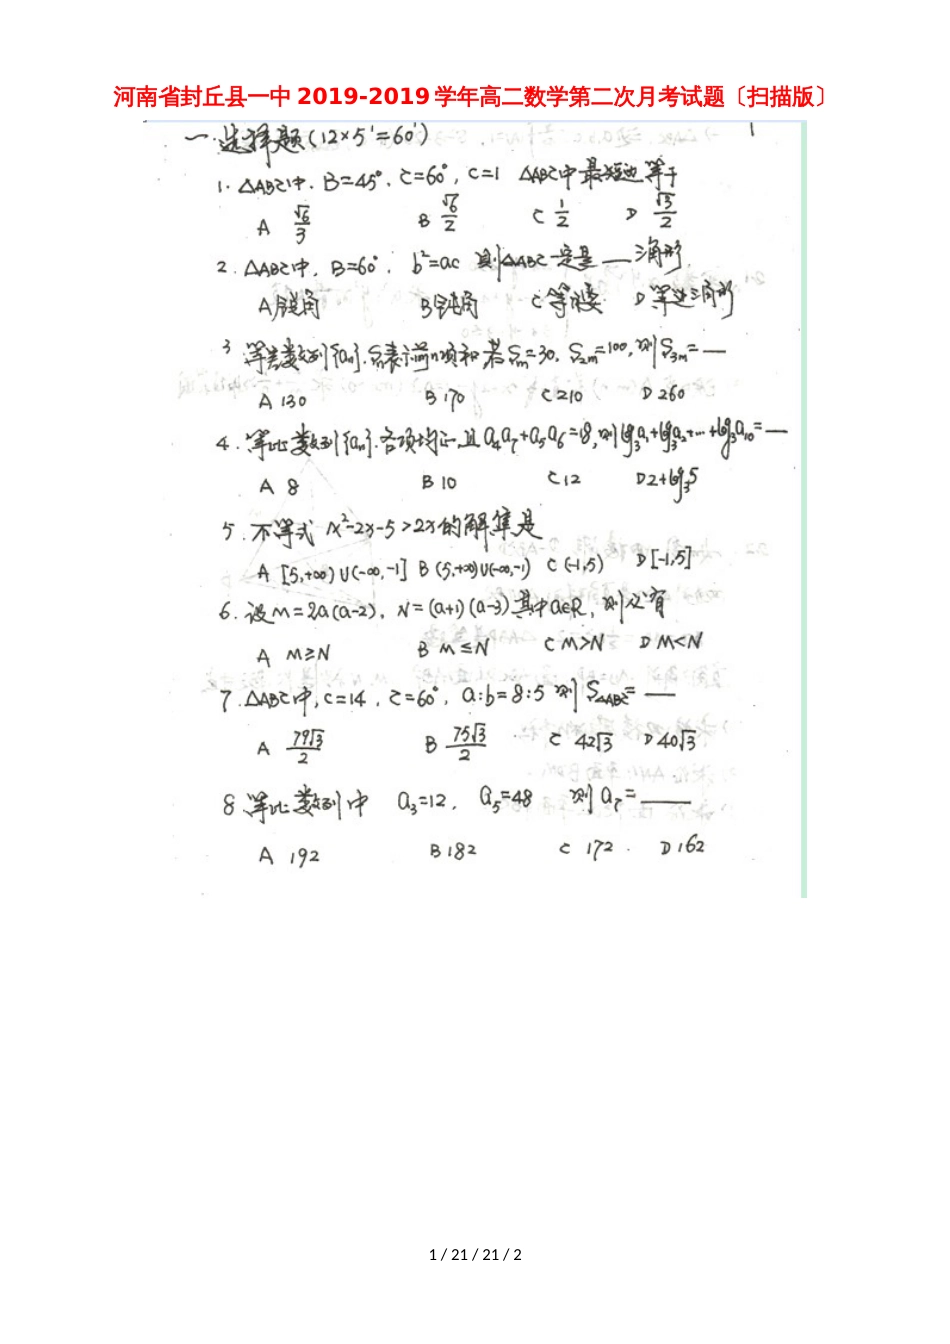 河南省封丘县一中2019-2019学年高二数学第二次月考试题〔扫描版〕
一.选择题(12×5'=60') 1
1. △ABC中. B=45°. C=60°, c=1 △ABC中最短边等于
A √6/3 B √6/2 C 1/2 D √3/2
2. △ABC中, B=60°, b²=ac 则△ABC一定是 — 三角形
A 锐角 B 钝角 C 等腰 D 等边三角形
3 等差数列{an}. Sn表示前n项和 若Sm=30. S2m=100, 则S3m= —
A 130 B 170 C 210 D 260
4. 等比数列{an}. 各项均正, 且a4a7+a5a6=18, 则log3a1+log3a2+…+log3a10= —
A 8 B 10 C 12 D 2+log35
5. 不等式 x²-2x-5>2x的解集是
A [5,+∞)∪(-∞,-1] B (5,+∞)∪(-∞,-1) C (-1,5) D [-1,5]
6. 设M=2a(a-2), N=(a+1)(a-3) 其中a∈R, 则必有
A M≥N B M≤N C M>N D M<N
7. △ABC中, c=14, C=60°, a:b=8:5 则S△ABC= —
A 79√3/2 B 75√3/2 C 42√3 D 40√3
8 等比数列中 a3=12, a5=48 则a7= —
A 192 B 182 C 172. D 162
1 / 21 / 21 / 2